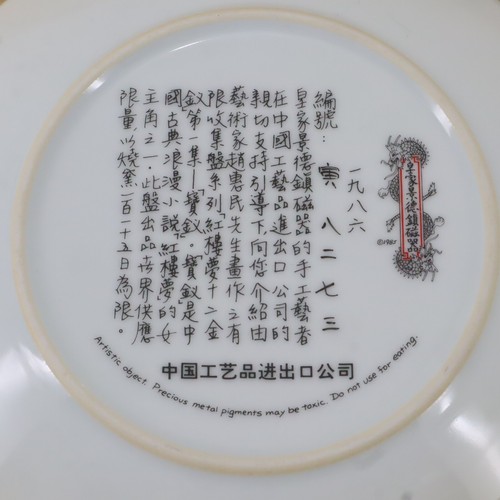 編號：寅八二七三
一九八六
皇家景德鎮磁器的手工藝者
在中國工藝品進出口公司的
親切支持引導下向您介紹由
藝術家趙惠民先生畫作之有
限收集盤系列「紅樓夢十二金
釵」第一集—「寶釵」。「寶釵」是中
國古典浪漫小說「紅樓夢」的女
主角之一．此盤出品世界供應
限量以燒窯一百一十五日為限。
皇家景德鎮磁器
©1987
中国工艺品进出口公司
Artistic object. Precious metal pigments may be toxic. Do not use for eating.